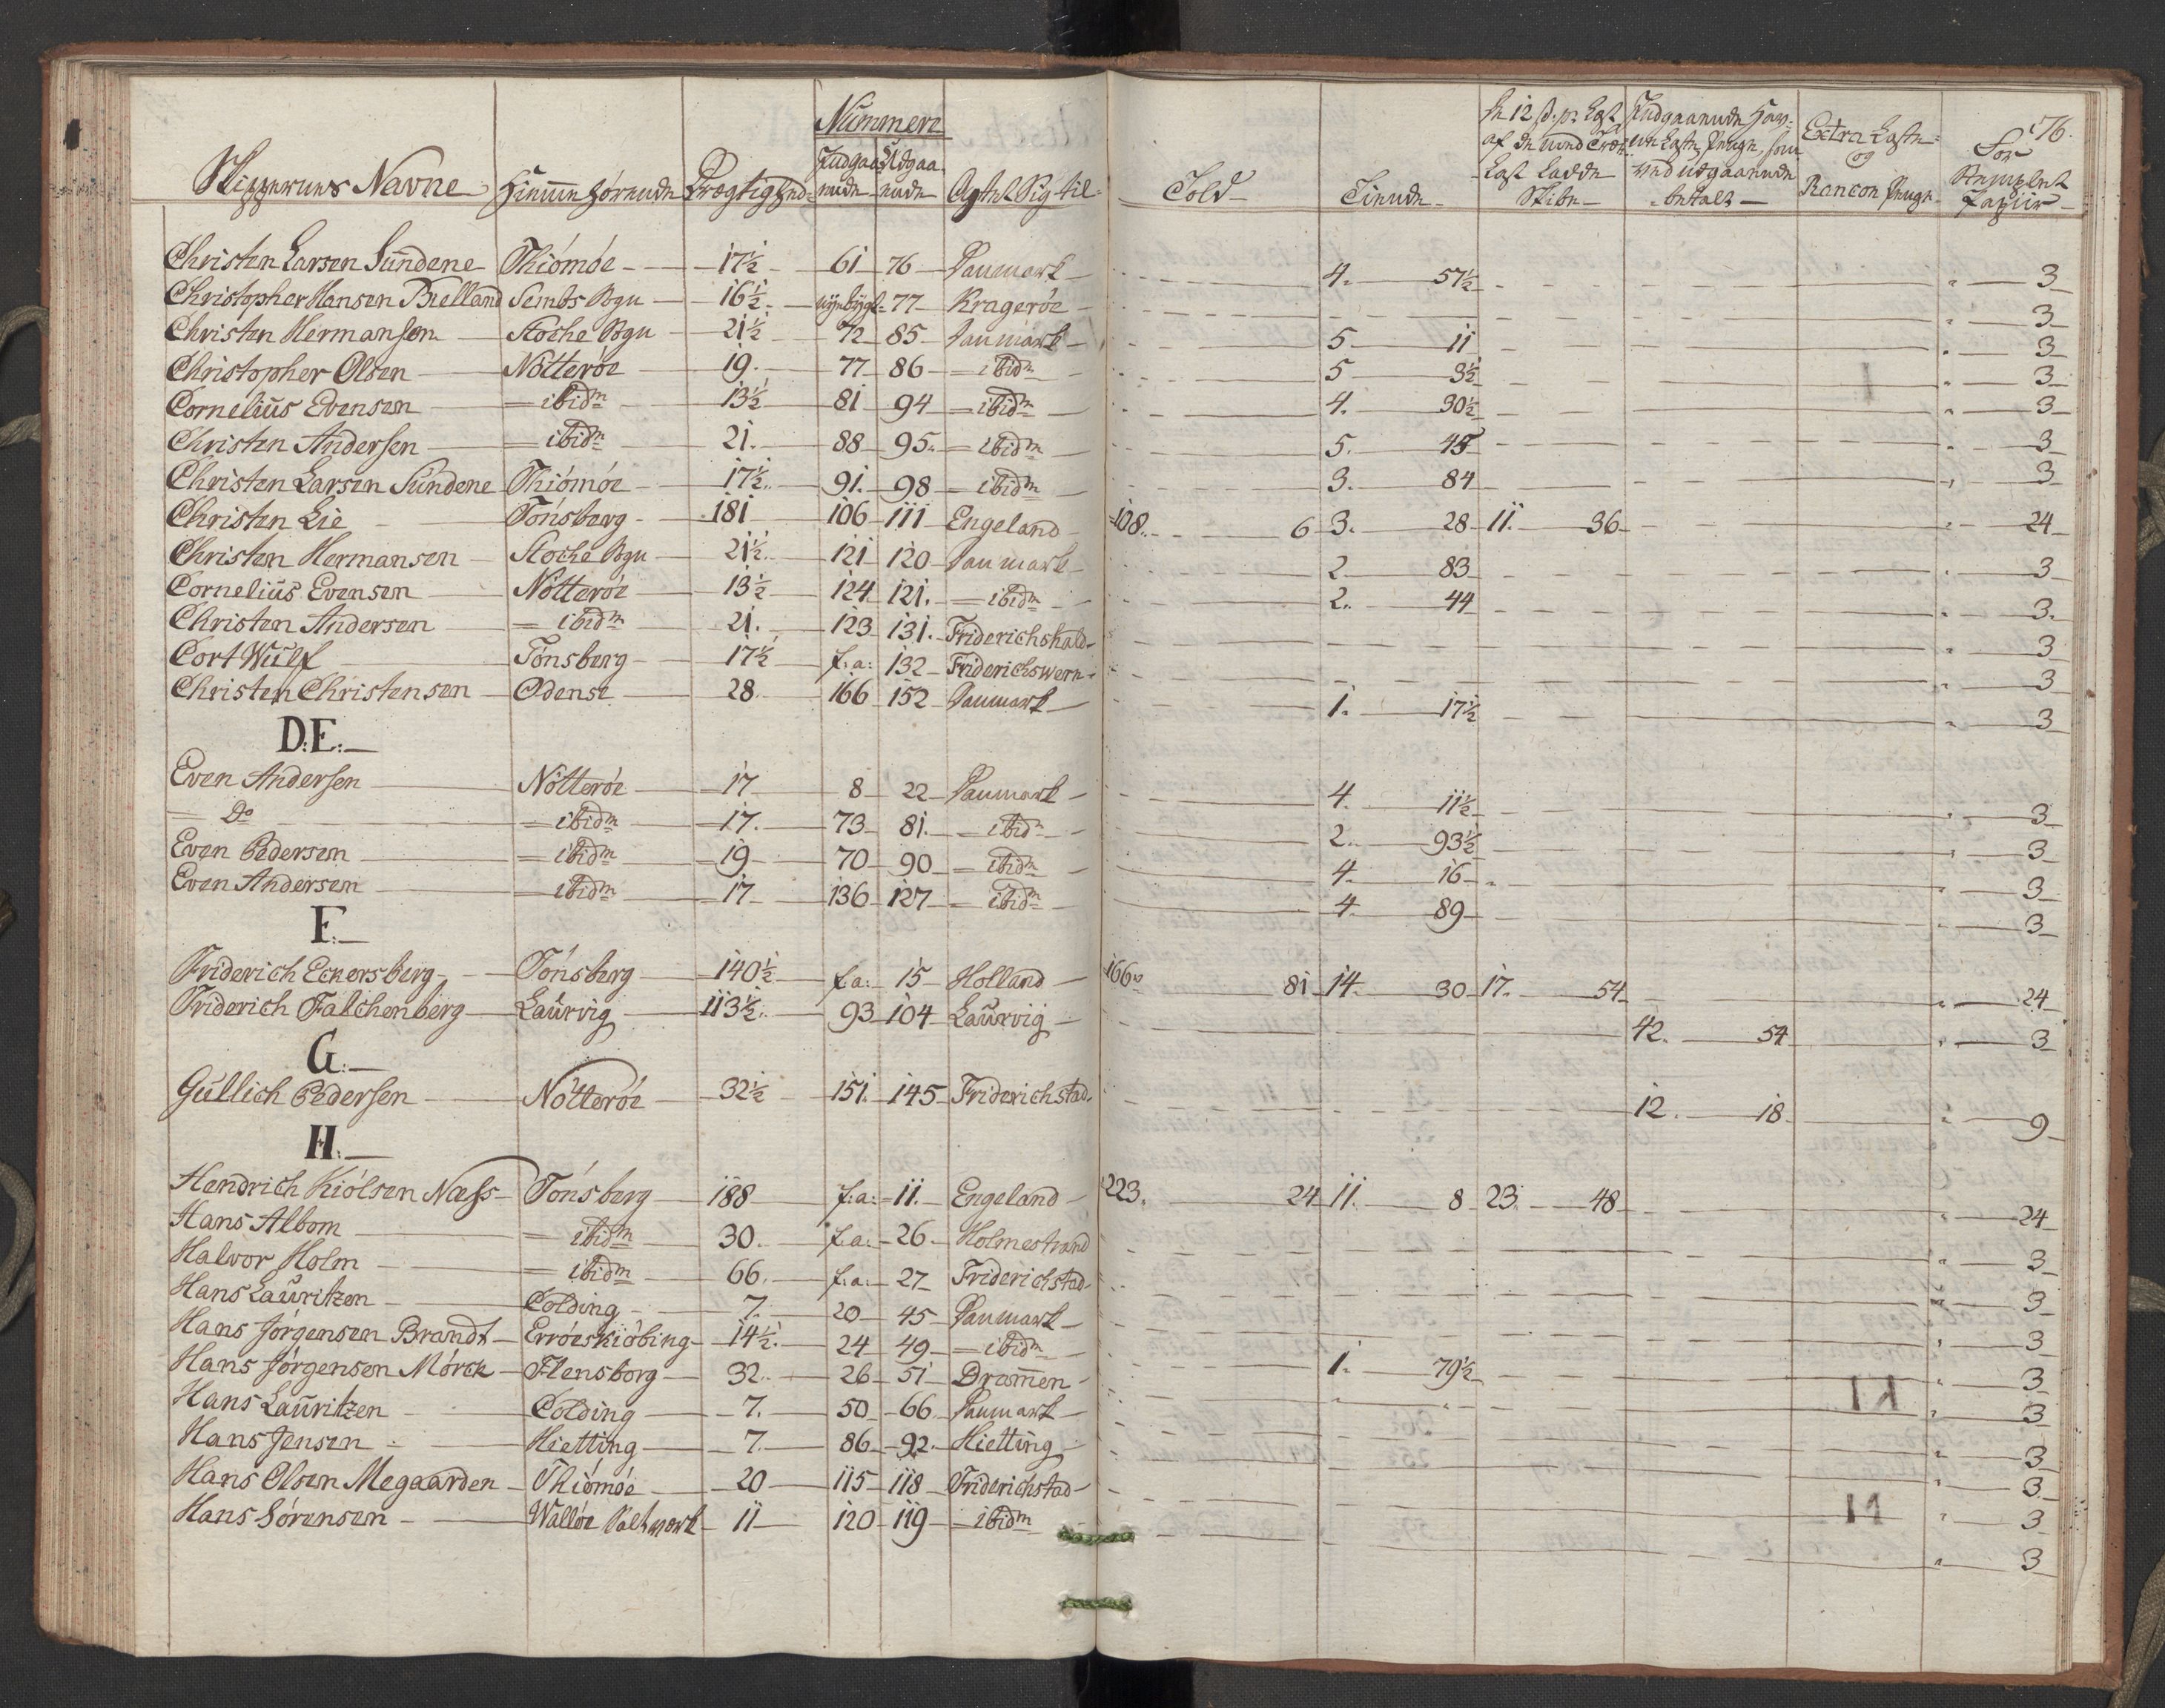 176.
Skippernes Navne Hiemmehörende Drægtighed Nummere Indgaaende Udgaaende Agtet Sig til Told Tiende á 12 s. pr. Læst af de med Træ Last Ladde Skibe Indgaaende som ved udgaaende betalt Extra Læste og Rancon Penge For Stemplet Papiir
Christen Larsen Sundene Thiömöe 17½ 61 76 Danmark 4. 57½ 3
Christopher Hansen Bielland Sembs Sogn 16½ nÿebÿgt 77 Krageröe 3
Christen Hermansen Stoche Sogn 21½ 72 85 Danmark 5 11 3
Christopher Olsen Nötteröe 19. 77 86 ibidm 5 3½ 3
Cornelius Evensen ibidm 13½ 81 94 ibidm 4. 30½ 3
Christen Andersen ibidm 21. 88 95. ibidm 5. 45 3
Christen Larsen Sundene Thiömöe 17½ 91. 98 ibidm 3. 84 3
Christen Lie Tönsberg 181 106 111 Engeland 108. 6 3. 28 11. 36 24
Christen Hermansen Stoche Sogn 21½ 121 120 Danmark 2 83 3
Cornelius Evensen Nötteröe 13½ 124 121. ibidm 2. 44 3.
Christen Andersen ibidm 21. 123 131. Friderichshald 3
Cort Wulf Tönsberg 17½ f:a: 132 Friderichswern 3
Christen Christensen Odense 28. 166 152 Danmark 1. 17½ 3
D:E:
Even Andersen Nötteröe 17 8 22 Danmark 4. 11½ 3
Do ibidm 17. 73 81. ibidm 2. 93½ 3
Even Pedersen ibidm 19 70 90 ibidm 4. 16 3
Even Andersen ibidm 17 136 127 ibidm 4. 89 3
F:
Friderich Eckersberg Tönsberg 140½ f:a: 15 Holland 166 81 14. 30 17. 54 24
Friderich Falchenberg Laurvig 113½ 93 104 Laurvig 42. 54 3
G:
Gullich Pedersen Nötteröe 32½ 151. 145 Friderichstad 12. 18 9
H:
Hendrich Kiölsen Næss Tönsberg 188 f:a: 11. Engeland 223. 24 11. 8 23. 48 24
Hans Albom ibidm 30. f:a: 26. Holmestrand 3
Halvor Holm ibidm 66. f:a: 27 Friderichstad 3
Hans Lauritzen Colding 7. 20 45 Danmark 3
Hans Jörgensen Brandt Erröeskiöbing 14½ 24 49 ibidm 1. 79½ 3
Hans Jörgensen Mörck Flensborg 32. 26 51 Dramen 3
Hans Lauritzen Colding 7. 50 66 Danmark 3
Hans Jensen Hietting 7. 86 92. Hietting 3
Hans Olsen Megaarden Thiömöe 20 115 118 Friderichstad 3
Hans Sörensen Wallöe Saltwerk 11 120 119 ibidm 3